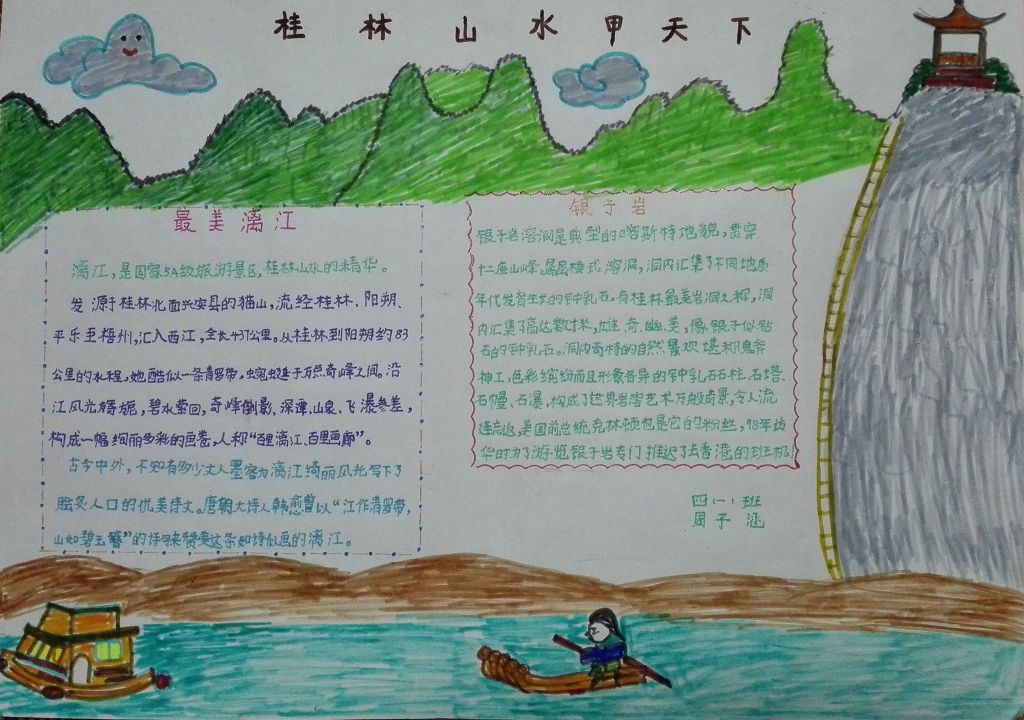 桂林山水甲天下
最美漓江
漓江，是国家5A级旅游景区，桂林山水的精华。
发源于桂林北面兴安县的猫山，流经桂林、阳朔、
平乐至梧州，汇入西江，全长437公里。从桂林到阳朔约83
公里的水程。她酷似一条青罗带，蜿蜒于万点奇峰之间。沿
江风光旖旎，碧水萦回，奇峰倒影、深潭、山泉、飞瀑参差，
构成一幅绚丽多彩的画卷，人称“百里漓江、百里画廊”。
古今中外，不知有多少文人墨客为漓江绮丽风光写下了
脍炙人口的优美诗文。唐朝大诗人韩愈曾以“江作青罗带，
山如碧玉簪”的诗句来赞美这条如诗似画的漓江。
银子岩
银子岩溶洞是典型的喀斯特地貌，贯穿
十二座山峰，属层楼式溶洞，洞内汇集了不同地质
年代发育生长的钟乳石，有桂林最美岩洞之称，洞
内汇集了高达数十米，雄、奇、幽、美，像银子似钻
石的钟乳石。洞内奇特的自然景观堪称鬼斧
神工，色彩缤纷而且形象各异的钟乳石石柱、石塔、
石幔、石瀑，构成了世界岩溶艺术万般奇景，令人流
连忘返，美国前总统克林顿也是它的粉丝，98年访
华时为了游览银子岩专门推迟了去香港的班机！
四（一）班
周子涵